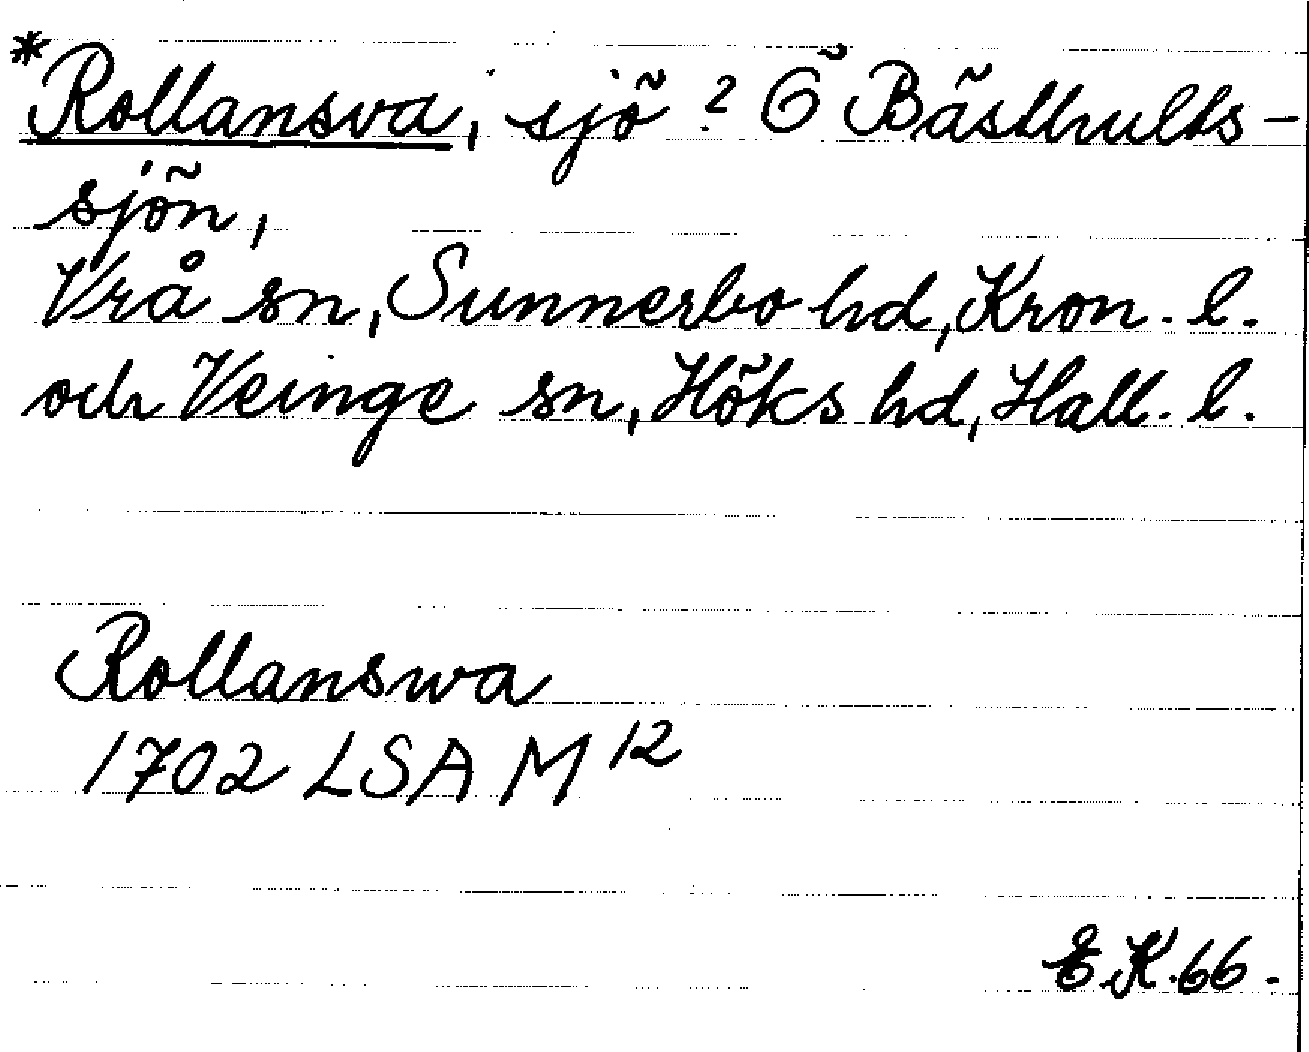 *Rollansva, sjö ? Ö Bästhults-
sjön,
Vrå sn, Sunnerbo hd, Kron. l.
och Veinge sn, Höks hd, Hall. l.
Rollanswa
1702 LSA M 12
E.K.66.